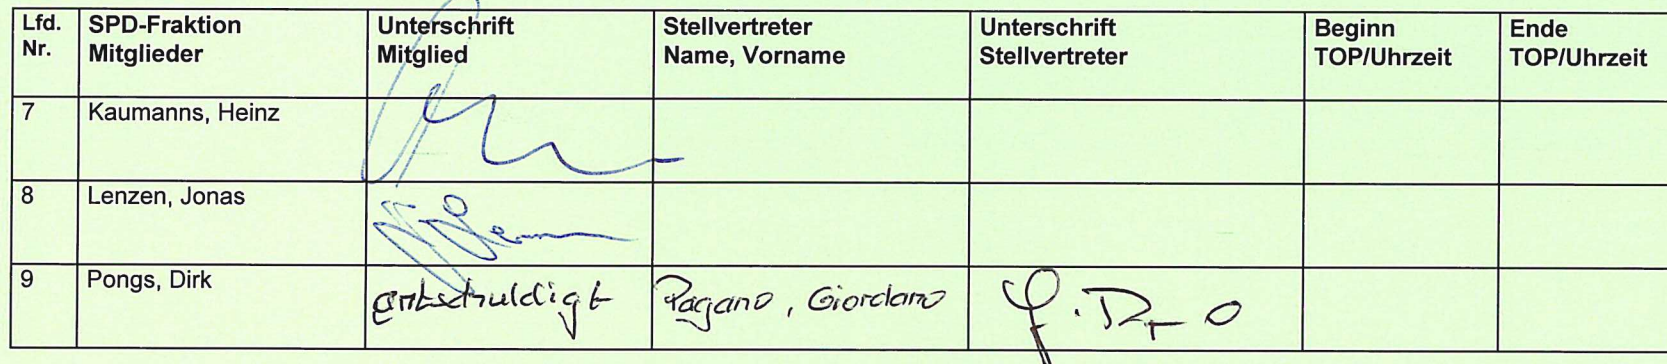 Lfd. Nr. SPD-Fraktion Mitglieder Unterschrift Mitglied Stellvertreter Name, Vorname Unterschrift Stellvertreter Beginn TOP/Uhrzeit Ende TOP/Uhrzeit
7 Kaumanns, Heinz
8 Lenzen, Jonas
9 Pongs, Dirk entschuldigt Pagano, Giordano